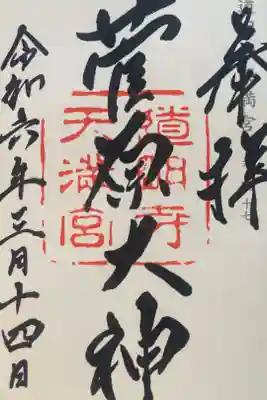 奉拝
菅原大神
道明寺
天満宮
令和六年三月十四日